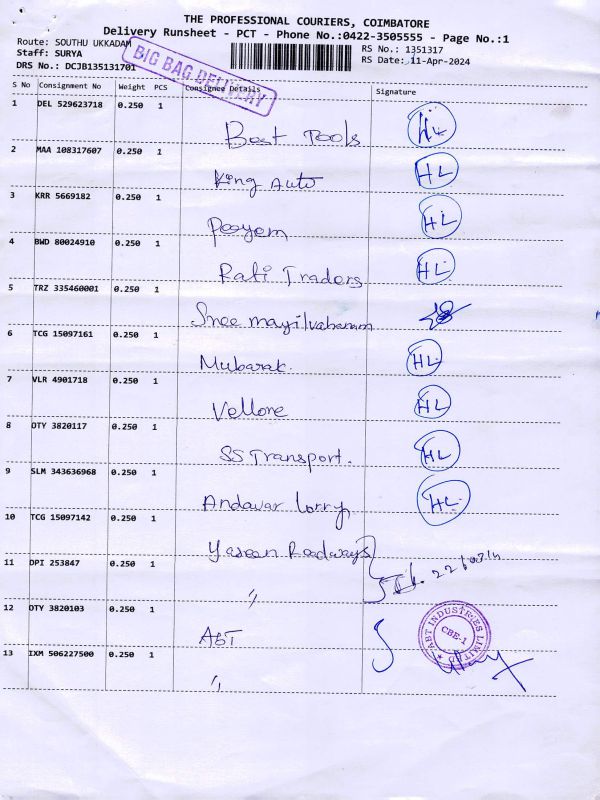 THE PROFESSIONAL COURIERS, COIMBATORE
Delivery Runsheet - PCT - Phone No.:0422-3505555 - Page No.:1
Route: SOUTHU UKKADAM
RS No.: 1351317
Staff: SURYA
RS Date: 11-Apr-2024
DRS No.: DCJB135131701
BIG BAG DELIVERY
S No Consignment No Weight PCS Consignee Details Signature
1 DEL 529623718 0.250 1 Best Tools HL
2 MAA 108317607 0.250 1 King Auto HL
3 KRR 5669182 0.250 1 HL
4 BWD 80024910 0.250 1 Rafi Traders HL
5 TRZ 335460001 0.250 1 Shree
6 TCG 15097161 0.250 1 Mubarak. HL
7 VLR 4901718 0.250 1 Vellore HL
8 OTY 3820117 0.250 1 SS Transport. HL
9 SLM 343636968 0.250 1 Andavar lorry HL
10 TCG 15097142 0.250 1 Yaseen Roadways
11 DPI 253847 0.250 1 "
12 OTY 3820103 0.250 1 ABT
ABT INDUSTRIES LIMITED
CBE-1
13 IXM 506227500 0.250 1 "